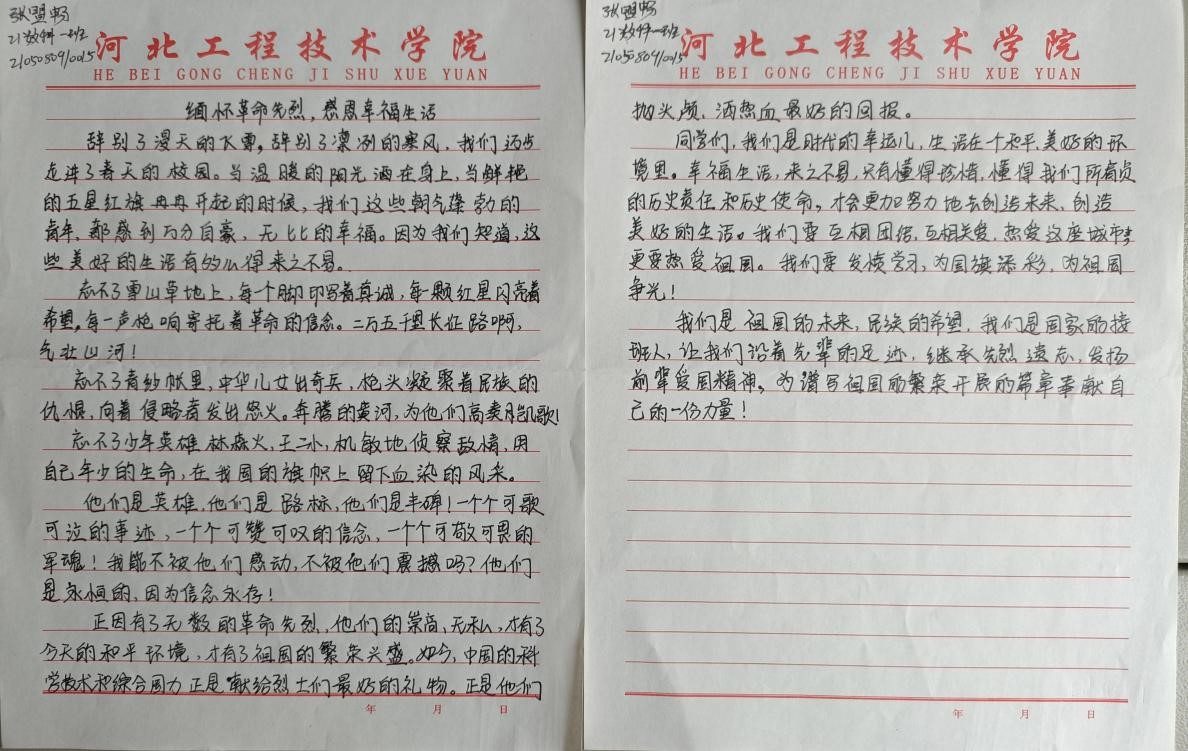 张盟畅
21数科一班
2105080910015
河北工程技术学院
HE BEI GONG CHENG JI SHU XUE YUAN
缅怀革命先烈,感恩幸福生活
辞别了漫天的飞雪,辞别了凛冽的寒风,我们迈步
走进了春天的校园。当温暖的阳光洒在身上,当鲜艳
的五星红旗冉冉开起的时候,我们这些朝气蓬勃的
青年,都感到万分自豪,无比的幸福。因为我们知道,这
些美好的生活有的么得来之不易。
忘不了雪山草地上,每个脚印写着真诚,每一颗红星闪亮着
希望,每一声枪响寄托着革命的信念。二万五千里长征路啊,
气壮山河!
忘不了青纱帐里,中华儿女出奇兵,枪头凝聚着民族的
仇恨,向着侵略者发出怒火。奔腾的黄河,为他们高奏凯歌!
忘不了少年英雄林森火,王二小,机敏地侦察敌情,因
自己年少的生命,在我国的旗帜上留下血染的风采。
他们是英雄,他们是路标,他们是丰碑!一个个可歌
可泣的事迹,一个个可赞可叹的信念,一个个可敬可畏的
军魂!我能不被他们感动,不被他们震撼吗?他们
是永恒的,因为信念永存!
正因有了无数的革命先烈,他们的崇高,无私,才有了
今天的和平环境,才有了祖国的繁荣兴盛。如今,中国的科
学技术和综合国力正是献给烈士们最好的礼物。正是他们
年 月 日
张盟畅
21数科一班
2105080910015
河北工程技术学院
HE BEI GONG CHENG JI SHU XUE YUAN
抛头颅、洒热血最好的回报。
同学们,我们是时代的幸运儿,生活在个和平,美好的环
境里。幸福生活,来之不易,只有懂得珍惜,懂得我们所肩负
的历史责任和历史使命,才会更加努力地去创造未来,创造
美好的生活。我们要互相团结,互相关爱,热爱这座城市
更要热爱祖国。我们要发愤学习,为国旗添彩,为祖国
争光!
我们是祖国的未来,民族的希望,我们是国家的接
班人,让我们沿着先辈的足迹,继承先烈遗志,发扬
前辈爱国精神,为谱写祖国的繁荣开展的篇章奉献自
己的一份力量!
年 月 日